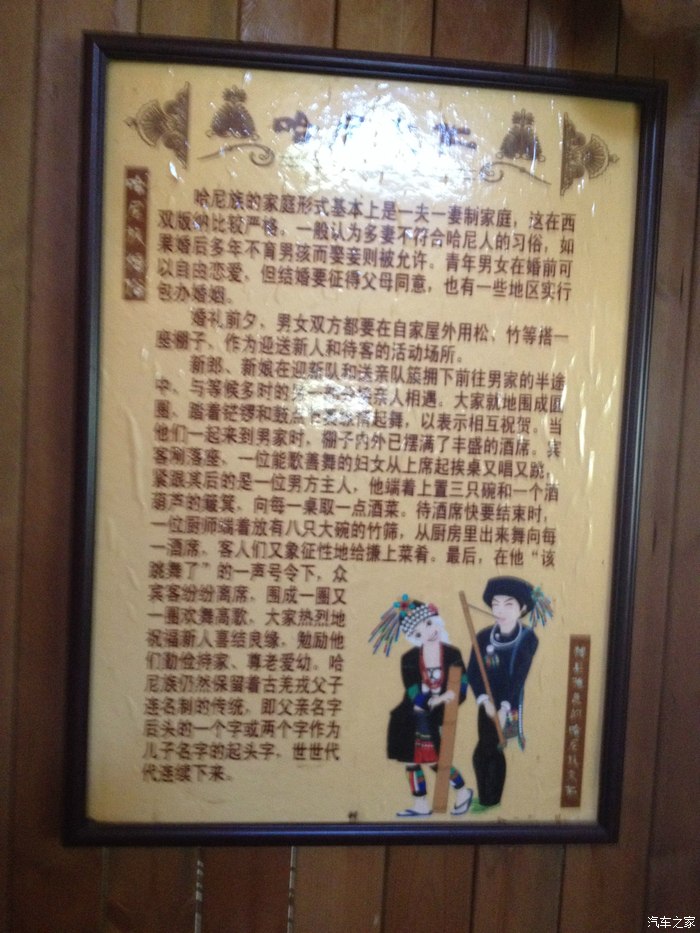 哈尼族婚俗
哈尼族的家庭形式基本上是一夫一妻制家庭，这在西
双版纳比较严格，一般认为多妻不符合哈尼人的习俗，如
果婚后多年不育男孩而娶妾则被允许。青年男女在婚前可
以自由恋爱，但结婚要征得父母同意，也有一些地区实行
包办婚姻。
婚礼前夕，男女双方都要在自家屋外用松、竹等搭一
座棚子，作为迎送新人和待客的活动场所。
新郎、新娘在迎新队和送亲队簇拥下前往男家的半途
中，与等候多时的 亲人相遇。大家就地围成圆
圈，踏着铓锣和鼓点 起舞，以表示相互祝贺。当
他们一起来到男家时，棚子内外已摆满了丰盛的酒席。宾
客刚落座，一位能歌善舞的妇女从上席起挨桌又唱又跳，
紧跟其后的是一位男方主人，他端着上置三只碗和一个酒
葫芦的簸箕，向每一桌取一点酒菜。待酒席快要结束时，
一位厨师端着放有八只大碗的竹筛，从厨房里出来舞向每
一酒席，客人们又象征性地给搛上菜肴。最后，在他“该
跳舞了”的一声号令下，众
宾客纷纷离席，围成一圈又
一圈欢舞高歌，大家热烈地
祝福新人喜结良缘，勉励他
们勤俭持家、尊老爱幼。哈
尼族仍然保留着古羌戎父子
连名制的传统，即父亲名字
后头的一个字或两个字作为
儿子名字的起头字，世世代
代连续下来。
汽车之家